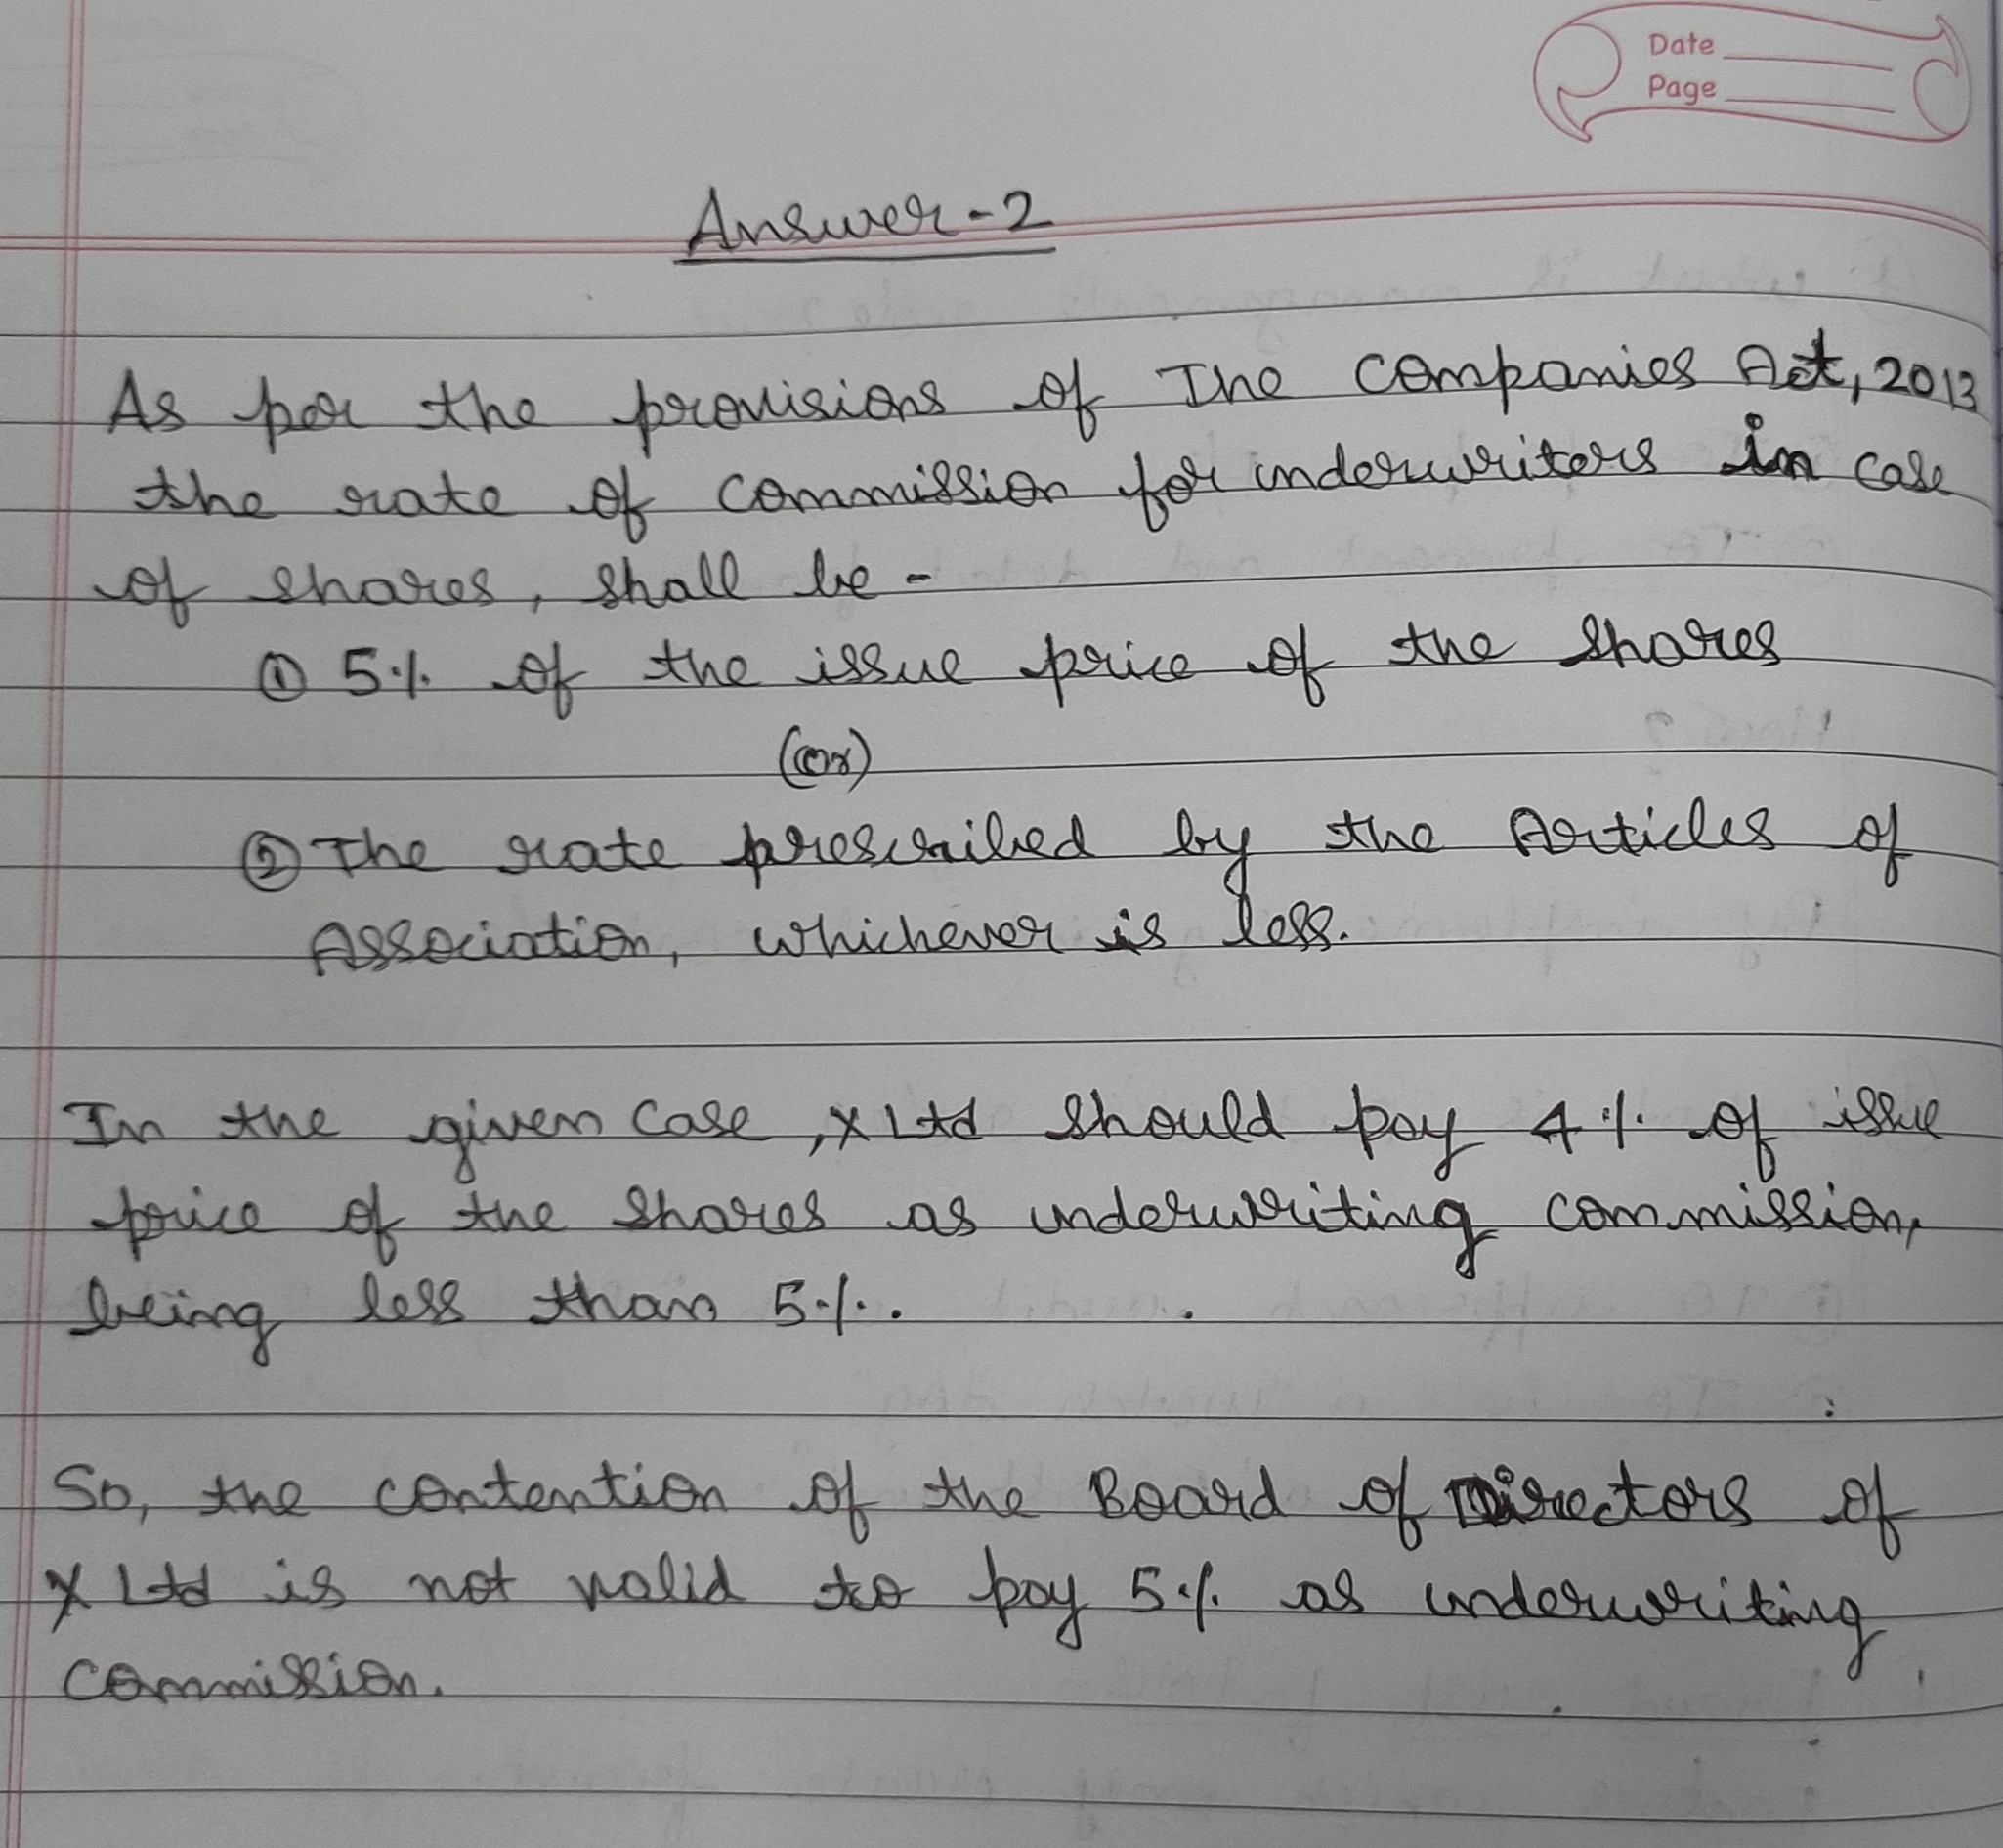 Date
Page
Answer-2
As per the provisions of The Companies Act, 2013
the rate of commission for underwriters in case
of shares, shall be -
① 5% of the issue price of the shares
(or)
② The rate prescribed by the Articles of
Association, whichever is less.
In the given case, X Ltd should pay 4% of issue
price of the shares as underwriting commission,
being less than 5%.
So, the contention of the Board of Directors of
X Ltd is not valid to pay 5% as underwriting
commission.